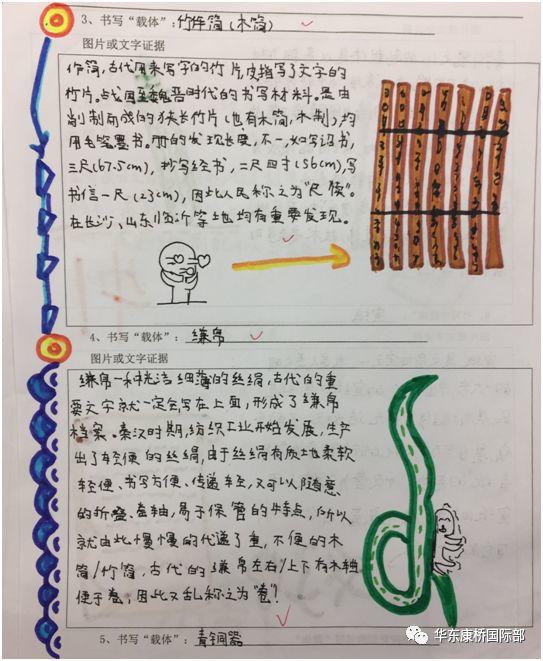 3、书写“载体”：竹简(木简)
图片或文字证据
竹简,古代用来写字的竹片,也指写了文字的
竹片。战国至魏晋时代的书写材料。是由
削制而成的狭长竹片(也有木简,木制),均
用毛笔墨书。册的发现长度,不一,如写诏书,
三尺(67.5cm),抄写经书,二尺四寸(56cm),写
书信一尺(23cm),因此人民称之为“尺牍”。
在长沙、山东临沂等地均有重要发现。
4、书写“载体”：缣帛
图片或文字证据
缣帛一种光洁细薄的丝绢,古代的重
要文字就一定会写在上面,形成了缣帛
档案。秦汉时期,纺织工业开始发展,生产
出了轻便的丝绢,由于丝绢有质地柔软
轻便、书写方便、传递轻,又可以随意
的折叠、卷轴,易于保管的特点,所以
就由此慢慢的代递了重,不便的木
简/竹简,古代的缣帛左右/上下有木轴
便于卷,因此又乱称之为“卷”!
5、书写“载体”：青铜器
华东康桥国际部